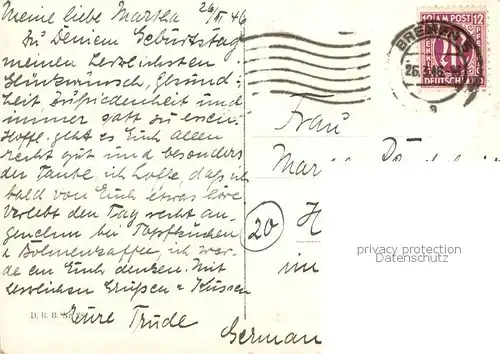 Meine liebe Martha 26/VI 46
Zu Deinem Geburtstag
meinen herzlichsten
Glückwunsch, Gesund-
heit Zufriedenheit und
immer satt zu essen.
Hoffl. geht es Euch allen
recht gut und besonders
der Tante, ich hoffe, daß ich
bald von Euch etwas höre
Verlebt den Tag recht an-
genehm bei Topfkuchen
u Bohnenkaffee, ich wer-
de an Euch denken. Mit
herzlichen Grüßen + Küssen
Eure Trude
D. R. B.
12 AM POST 12
DEUTSCHLAND
BREMEN 5
a
Frau
Mar
20 H
in
German
privacy protection
Datenschutz